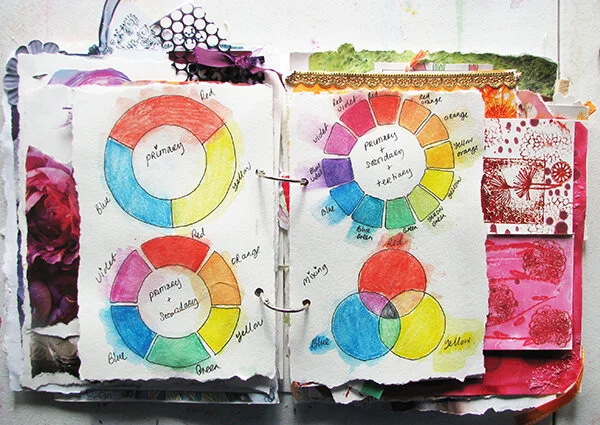 Red
Primary
Blue
Yellow
Violet
Red
Orange
Primary
+
Secondary
Blue
Yellow
Green
Red
Violet
Red
Red
Orange
Violet
Orange
Primary
+
Secondary
+
tertiary
Yellow
Orange
Blue
Violet
Yellow
Blue
Yellow
Green
Blue
Green
Green
Mixing
Red
Blue
Yellow